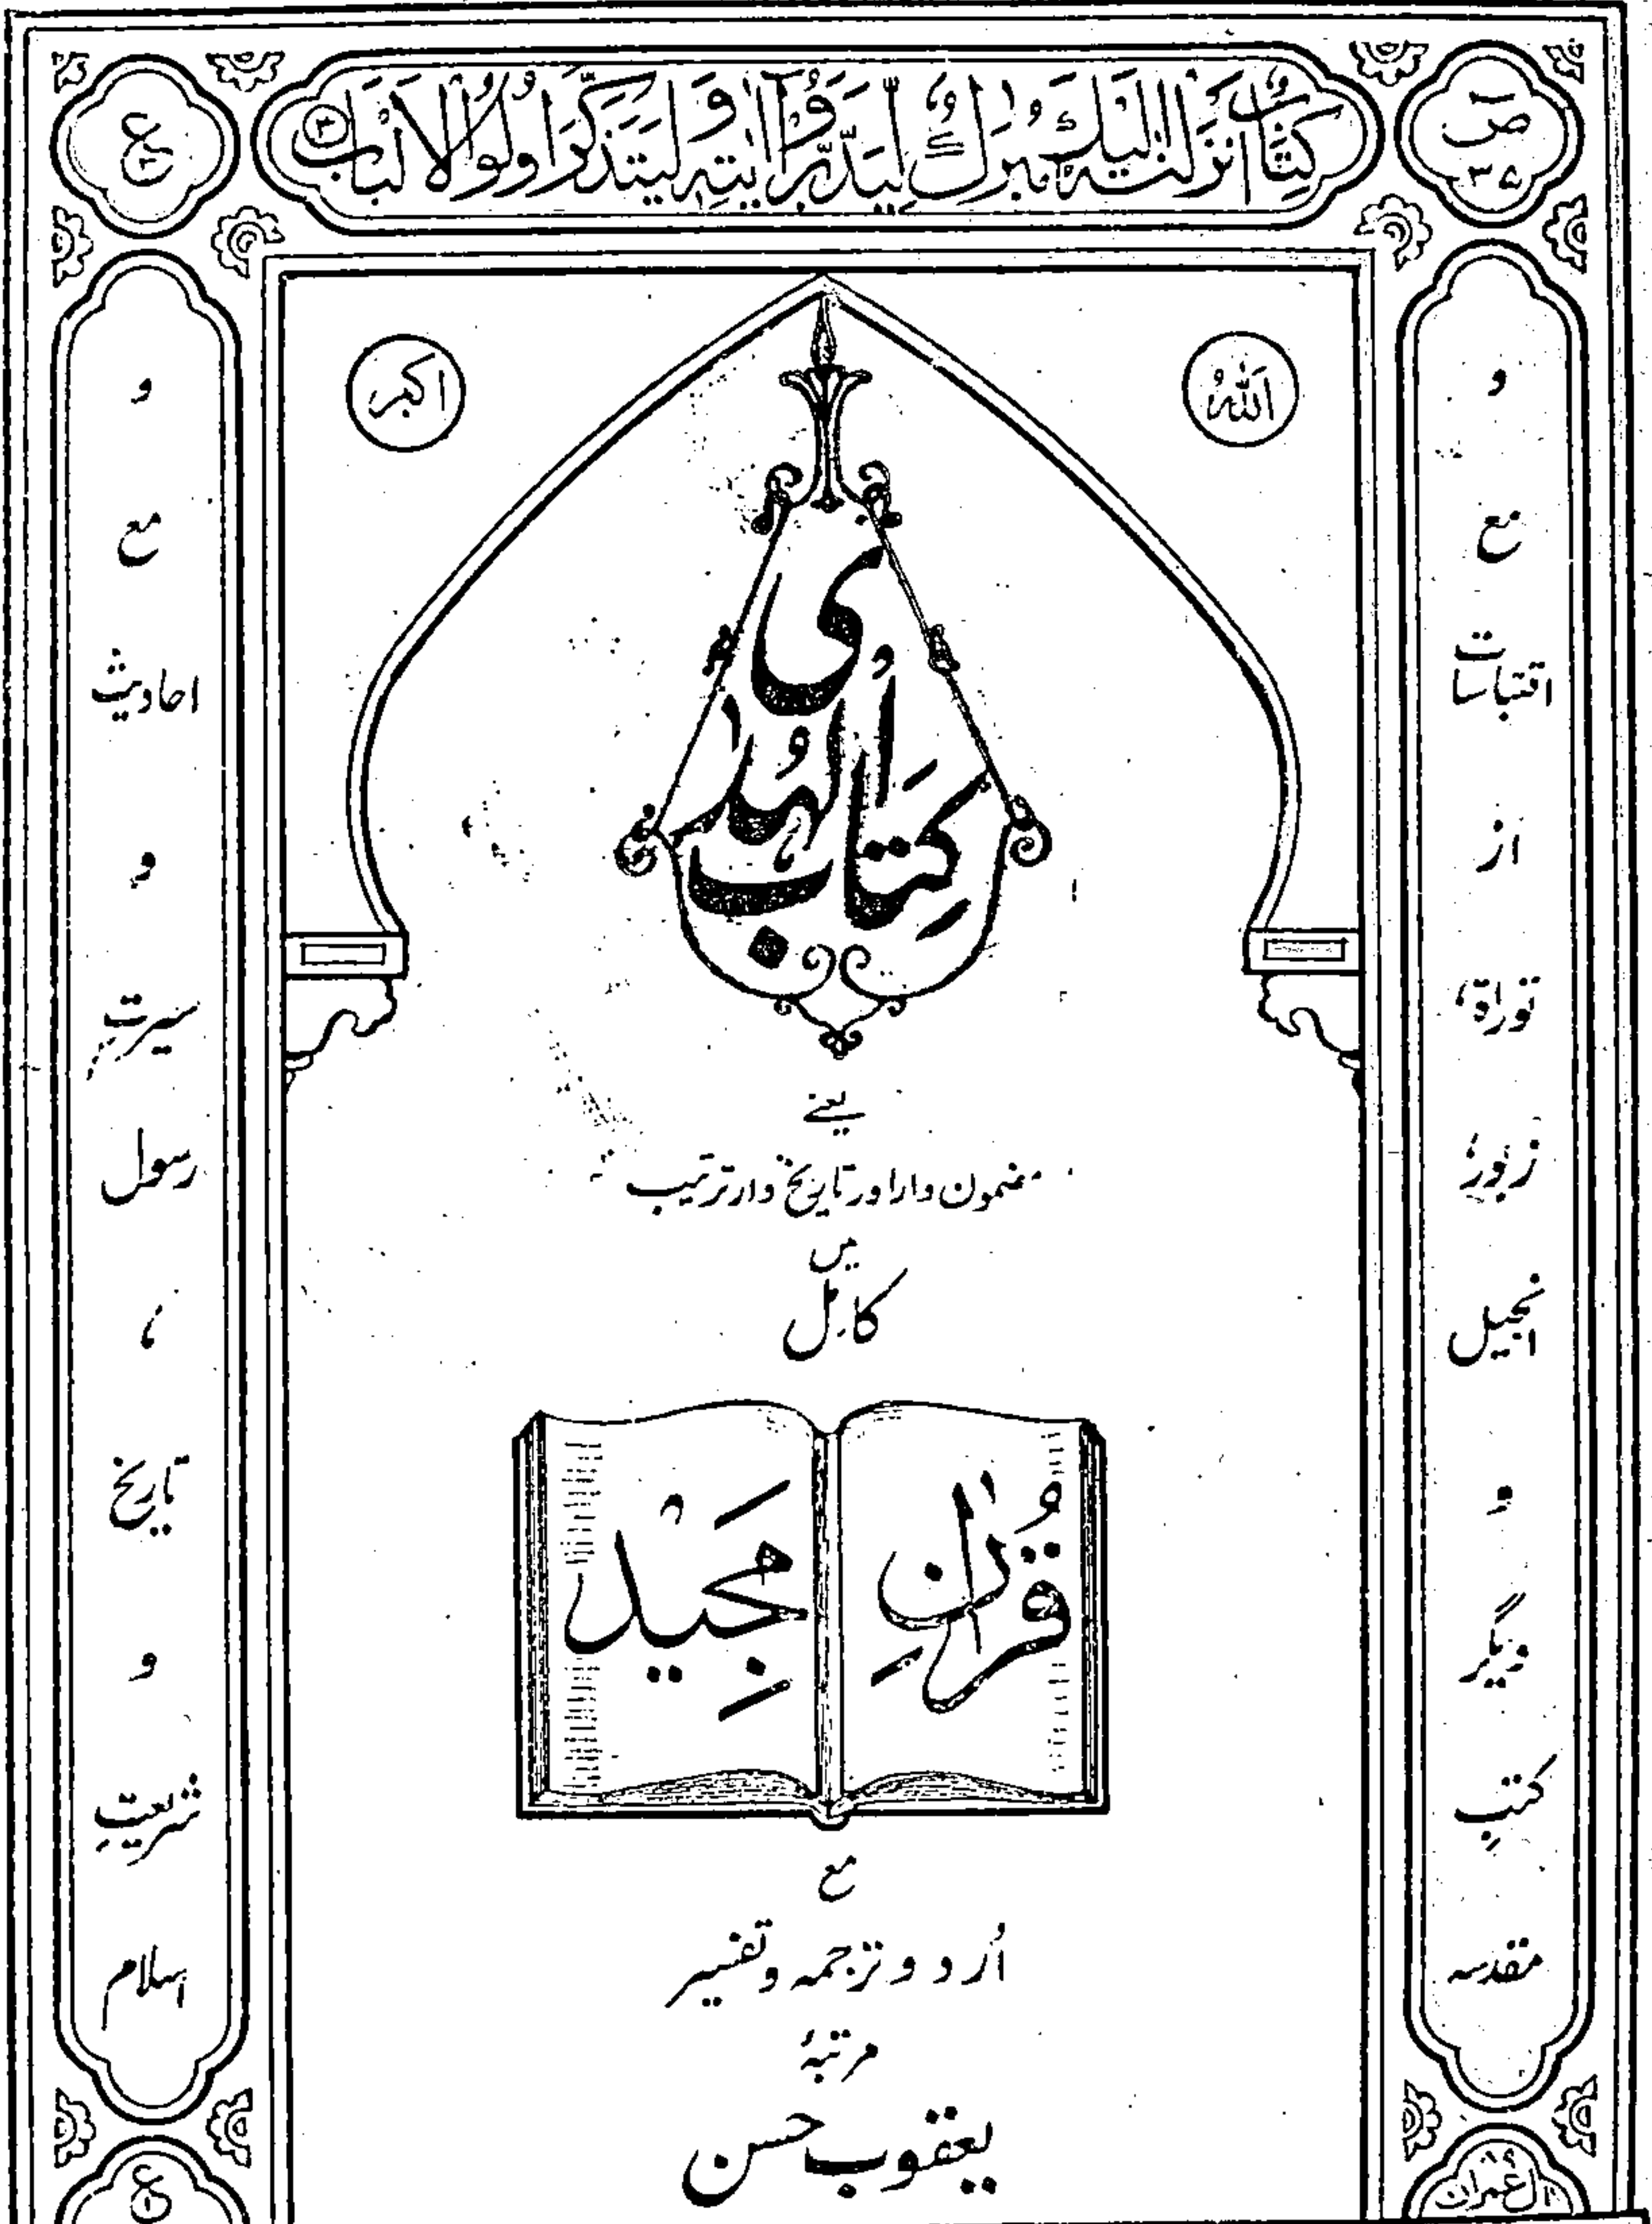 ص ۳۵
كِتٰبٌ اَنْزَلْنٰهُ اِلَيْكَ مُبٰرَكٌ لِّيَدَّبَّرُوْۤا اٰيٰتِهٖ وَلِيَتَذَكَّرَ اُولُوا الْاَلْبَابِ
ع ۳
اَللّٰهُ
اکبر
كِتَابُ الْهُدٰى
یعنے
مضمون وار اور تاریخ وار ترتیب
میں
کامِل
قُرْاٰنِ مَجِيْد
مع
اُردو ترجمہ و تفسیر
مرتبۂ
یعقوب حسن
و
مع
اقتباسات
از
توراۃ،
زبور،
انجیل
و
دیگر
کتبِ
مقدسہ
و
مع
احادیث
و
سیرتِ
رسول
،
تاریخ
و
شریعتِ
اسلام
اٰل عمران
ع